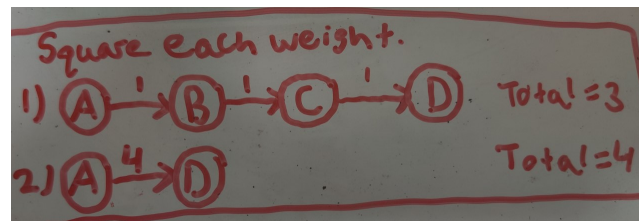 Square each weight.
1) A 1 B 1 C 1 D Total=3
2) A 4 D Total=4